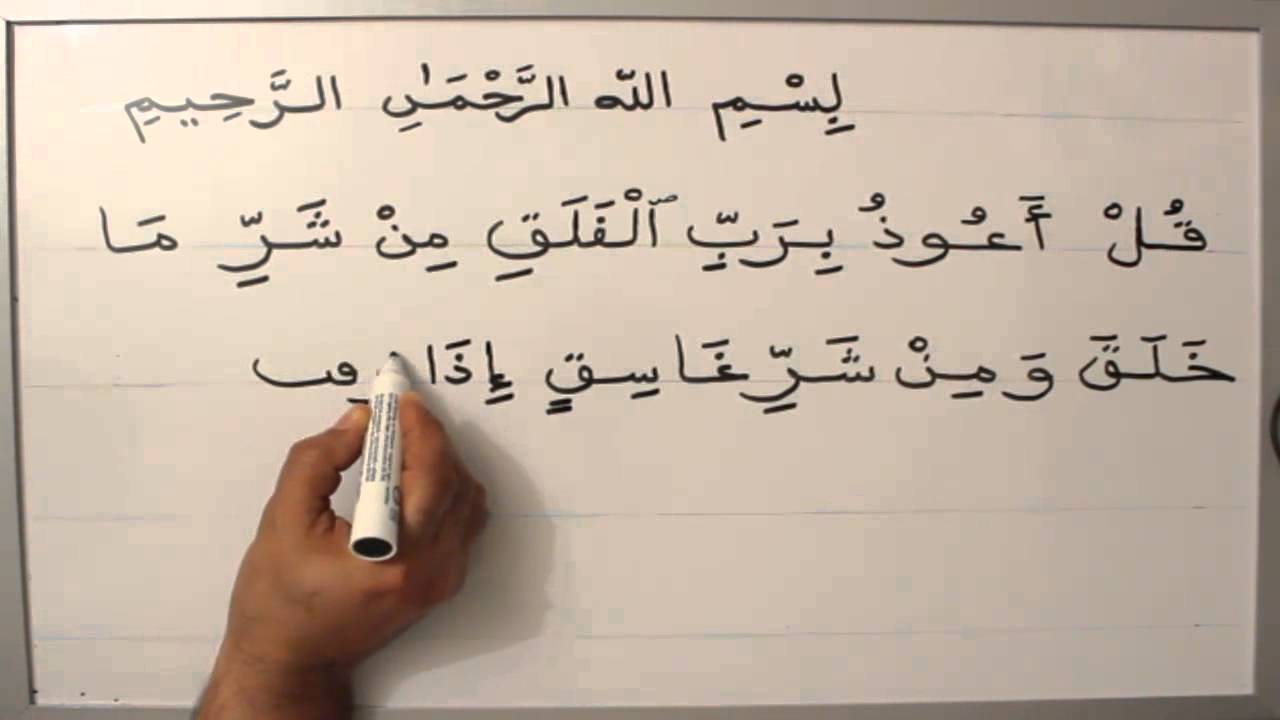 بِسْمِ اللّه الرَّحْمَٰنِ الرَّحِيمِ
قُلْ أَعُوذُ بِرَبِّ ٱلْفَلَقِ مِنْ شَرِّ مَا
خَلَقَ وَمِنْ شَرِّ غَاسِقٍ إِذَا